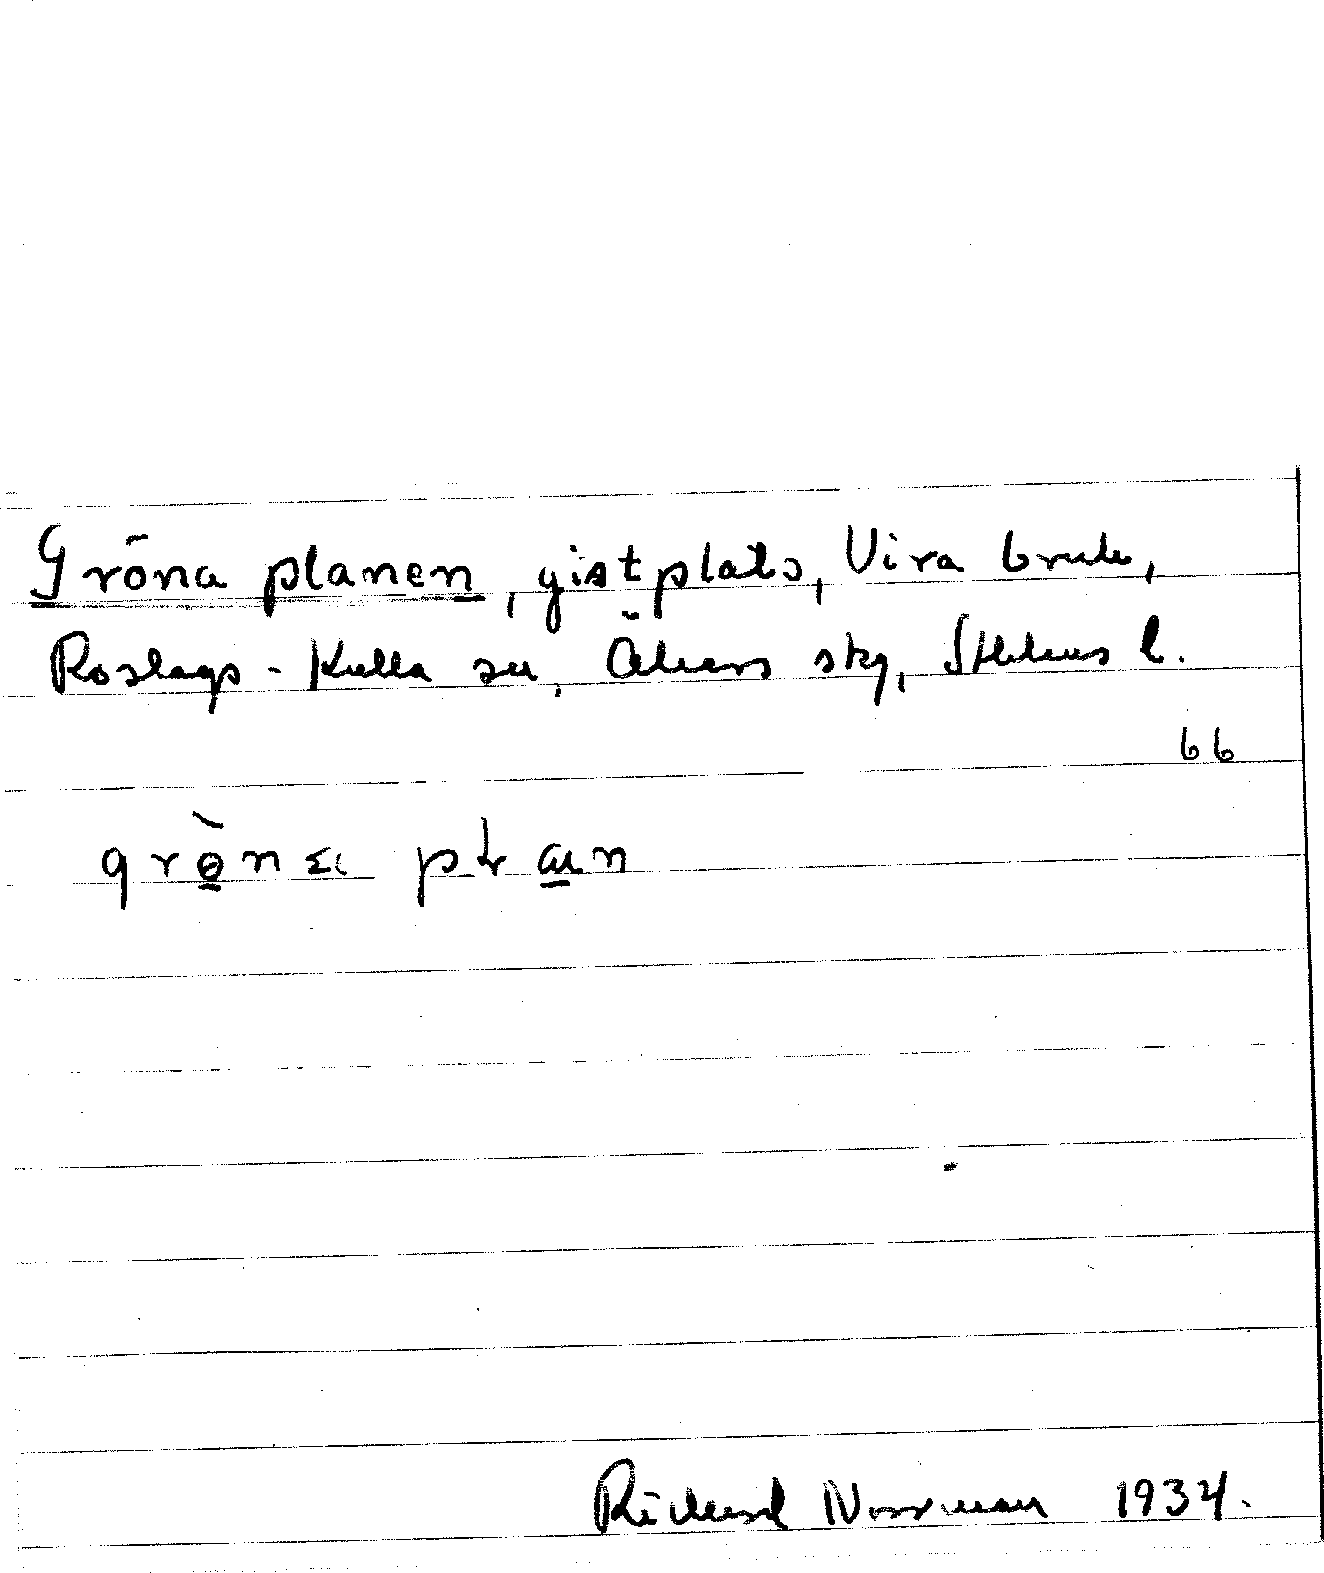 Gröna planen, gistplats, Vira bruk,
Roslags-Kulla sn, Åkers skg, Sthlms l.
66
Richard Norrman 1934.